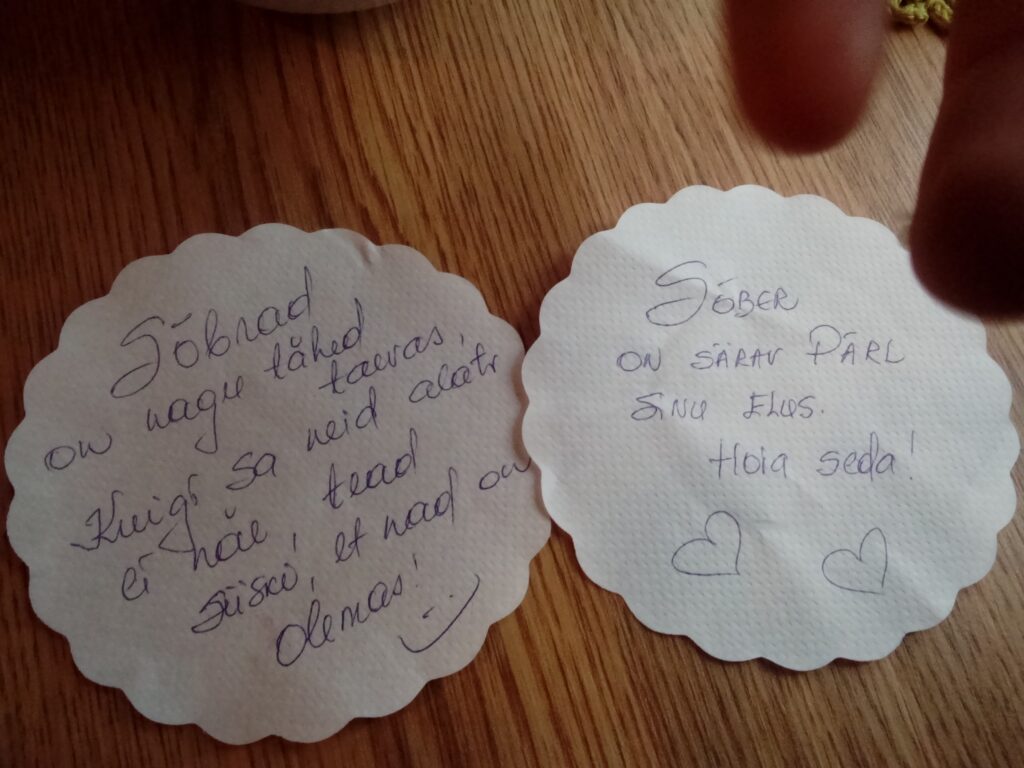 Sõbrad
on nagu tähed
taevas,
Kuigi sa neid alati
ei näe, tead
siiski, et nad on
olemas!
SÕBER
ON SÄRAV PÄRL
SINU ELUS.
Hoia seda!